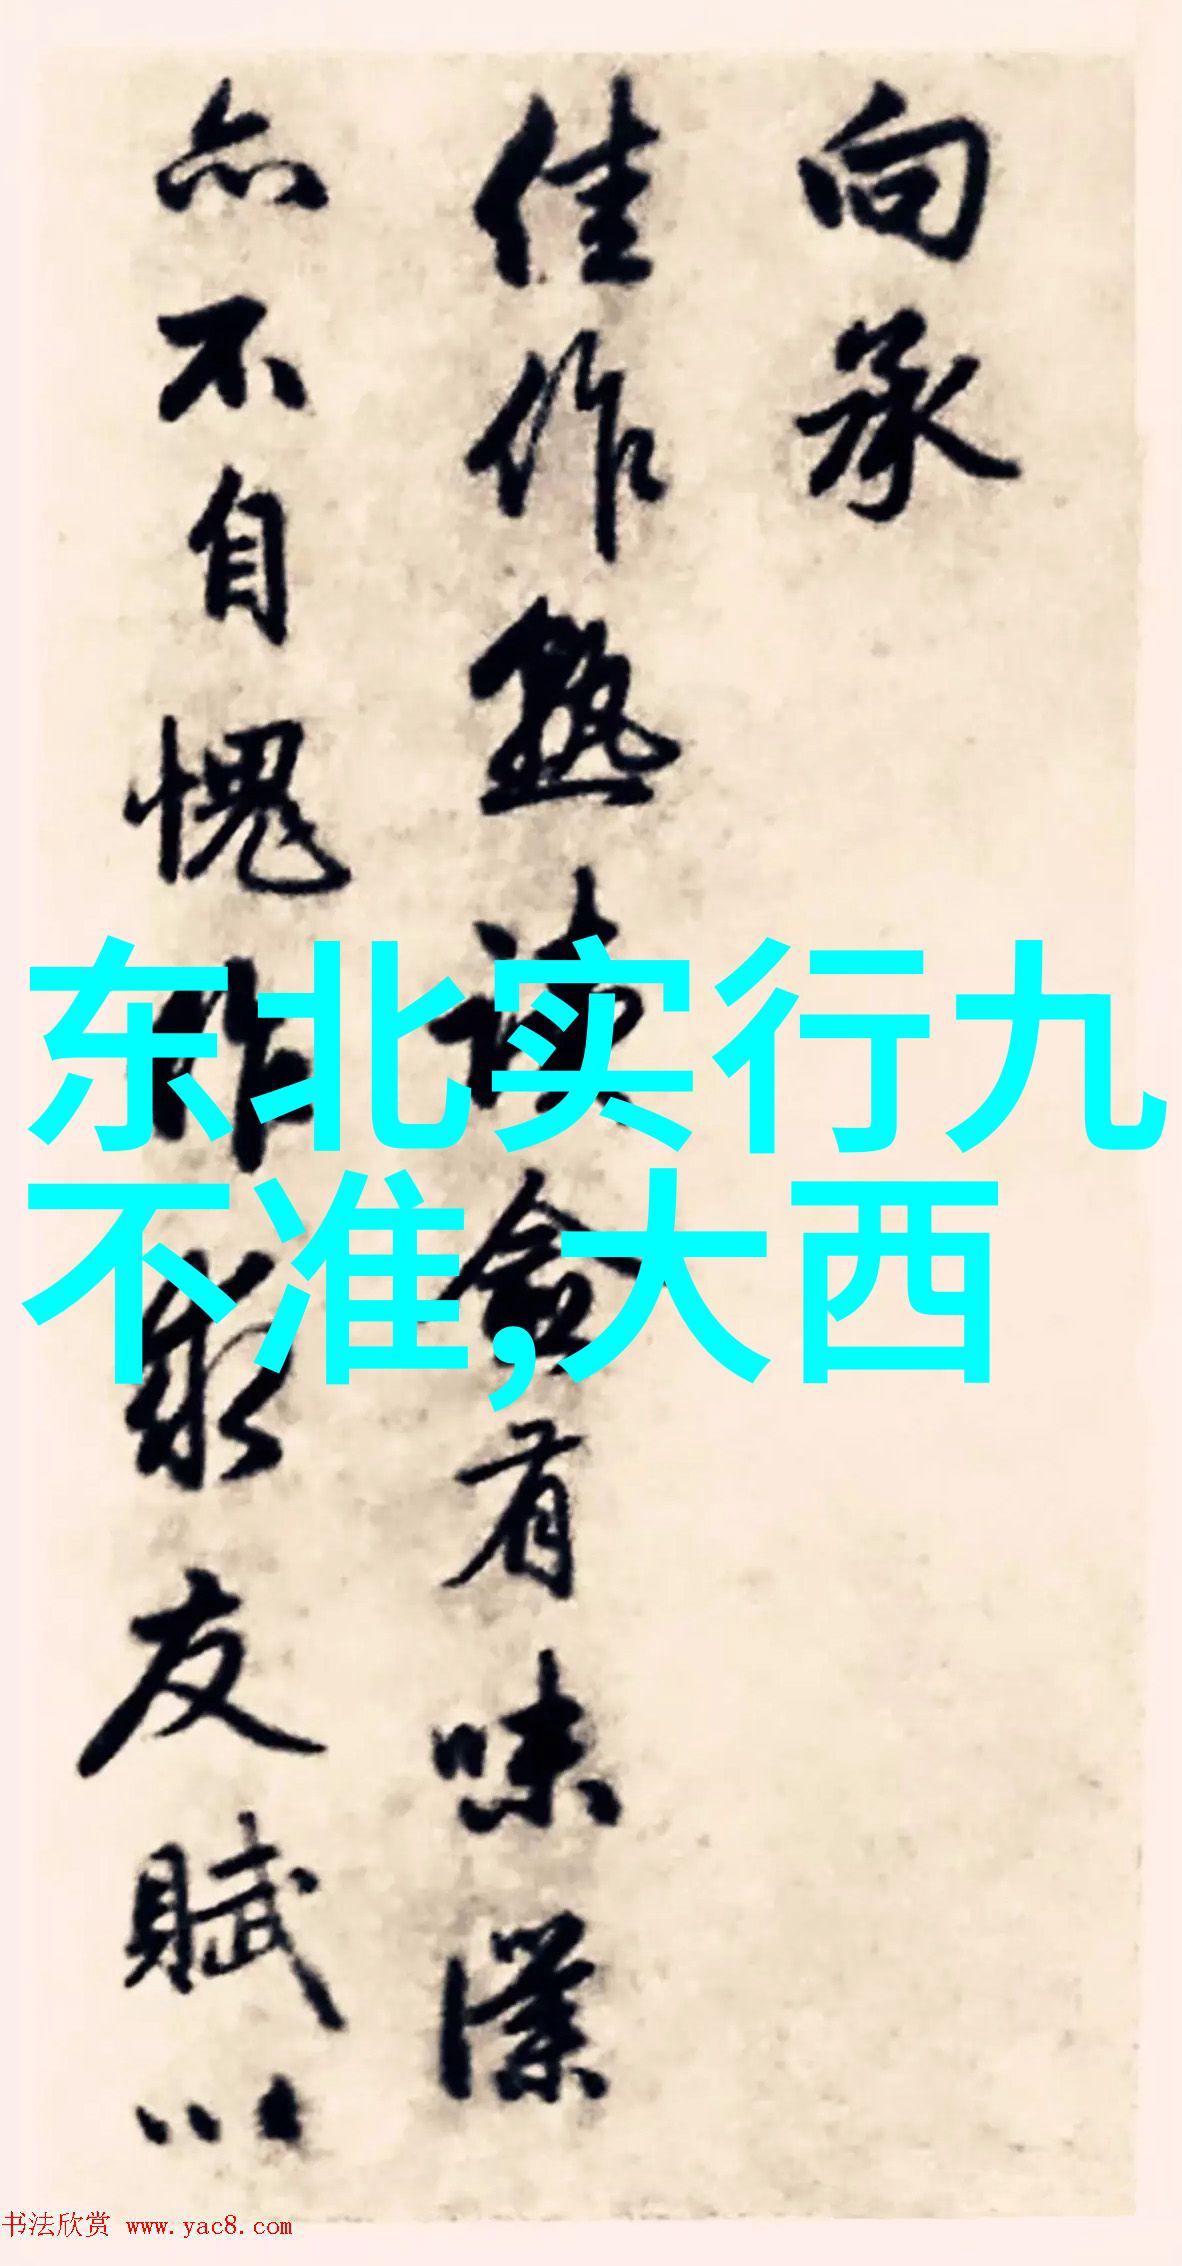 向承
佳作熟读
有味深
亦不自愧作
友赋以
东北实行九
不准,大西
书法欣赏 www.yac8.com